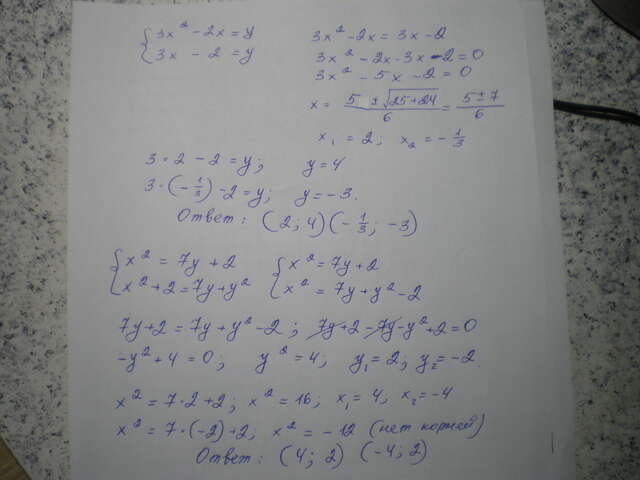 { 3x² - 2x = y
3x - 2 = y
3x² - 2x = 3x - 2
3x² - 2x - 3x - 2 = 0
3x² - 5x - 2 = 0
x = 5 ± √25+24 / 6 = 5 ± 7 / 6
x₁ = 2; x₂ = - 1/3
3 · 2 - 2 = y; y = 4
3 · (- 1/3) - 2 = y; y = - 3.
Ответ: (2; 4) (- 1/3; - 3)
{ x² = 7y + 2
x² + 2 = 7y + y²
{ x² = 7y + 2
x² = 7y + y² - 2
7y + 2 = 7y + y² - 2; 7y + 2 - 7y - y² + 2 = 0
- y² + 4 = 0; y² = 4; y₁ = 2; y₂ = - 2.
x² = 7 · 2 + 2; x² = 16; x₁ = 4, x₂ = - 4
x² = 7 · (- 2) + 2, x² = - 12 (нет корней)
Ответ: (4; 2) (- 4; 2)